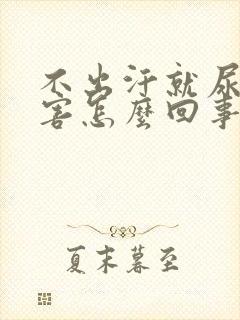 不出汗就尿
害怎麽回事
夏末暮至